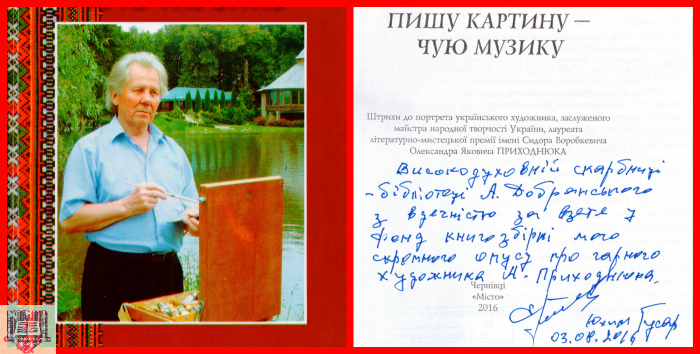 ПИШУ КАРТИНУ —
ЧУЮ МУЗИКУ
Штрихи до портрета українського художника, заслуженого
майстра народної творчості України, лауреата
літературно-мистецької премії імені Сидора Воробкевича
Олександра Яковича ПРИХОДНЮКА
Високодуховній скарбниці
– бібліотеці А. Добрянського
з вдячністю за взяте у
фонд книгозбірні мого
скромного опусу про гарного
художника А. Приходнюка.
Чернівці
«Місто»
2016
Юхим Гусар
03.08.2016